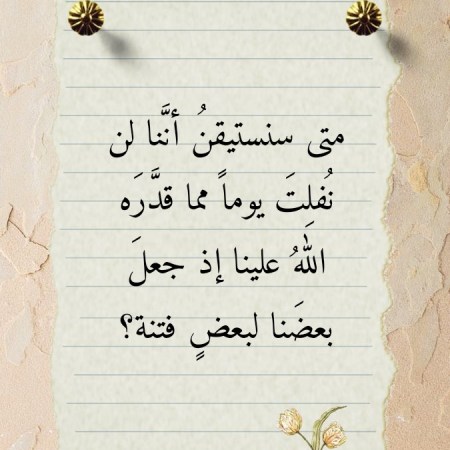 متى سنستيقنُ أنَّنا لن
نُفلِتَ يوماً مما قدَّرَه
اللهُ علينا إذ جعلَ
بعضَنا لبعضٍ فتنة؟